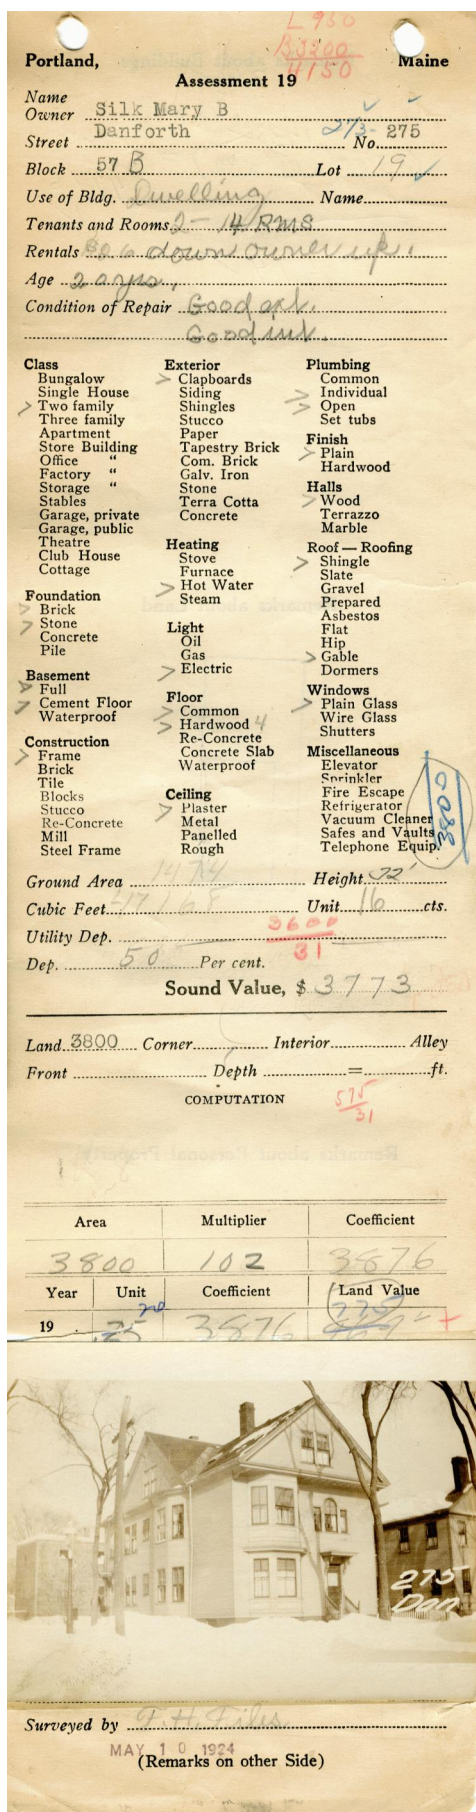 L 950
B3200
4150
Portland, Maine
Assessment 19
Name
Owner Silk Mary B
Street Danforth 273- No. 275
Block 57 B Lot 19
Use of Bldg. Dwelling Name
Tenants and Rooms 2 - 14 RMS
Rentals down owner up.
Age
Condition of Repair Good ext.
Good int.
Class
Bungalow
Single House
> Two family
Three family
Apartment
Store Building
Office "
Factory "
Storage "
Stables
Garage, private
Garage, public
Theatre
Club House
Cottage
Foundation
> Brick
> Stone
Concrete
Pile
Basement
> Full
> Cement Floor
Waterproof
Construction
> Frame
Brick
Tile
Blocks
Stucco
Re-Concrete
Mill
Steel Frame
Exterior
> Clapboards
Siding
Shingles
Stucco
Paper
Tapestry Brick
Com. Brick
Galv. Iron
Stone
Terra Cotta
Concrete
Heating
Stove
Furnace
> Hot Water
Steam
Light
Oil
Gas
> Electric
Floor
> Common
> Hardwood 4
Re-Concrete
Concrete Slab
Waterproof
Ceiling
> Plaster
Metal
Panelled
Rough
Plumbing
Common
> Individual
> Open
Set tubs
Finish
> Plain
Hardwood
Halls
> Wood
Terrazzo
Marble
Roof — Roofing
> Shingle
Slate
Gravel
Prepared
Asbestos
Flat
Hip
> Gable
Dormers
Windows
> Plain Glass
Wire Glass
Shutters
Miscellaneous
Elevator
Sprinkler
Fire Escape
Refrigerator
Vacuum Cleaner
Safes and Vaults
Telephone Equip.
Ground Area 1474 Height 32'
Cubic Feet Unit 16 cts.
Utility Dep. 3600
31
Dep. 50 Per cent.
Sound Value, $ 3773
Land 3800 Corner Interior Alley
Front Depth = ft.
COMPUTATION
575
31
Area Multiplier Coefficient
3800 102 3876
Year Unit Coefficient Land Value
19 .25 3876 775
275
Dan
Surveyed by F. H. Files
MAY 10 1924
(Remarks on other Side)